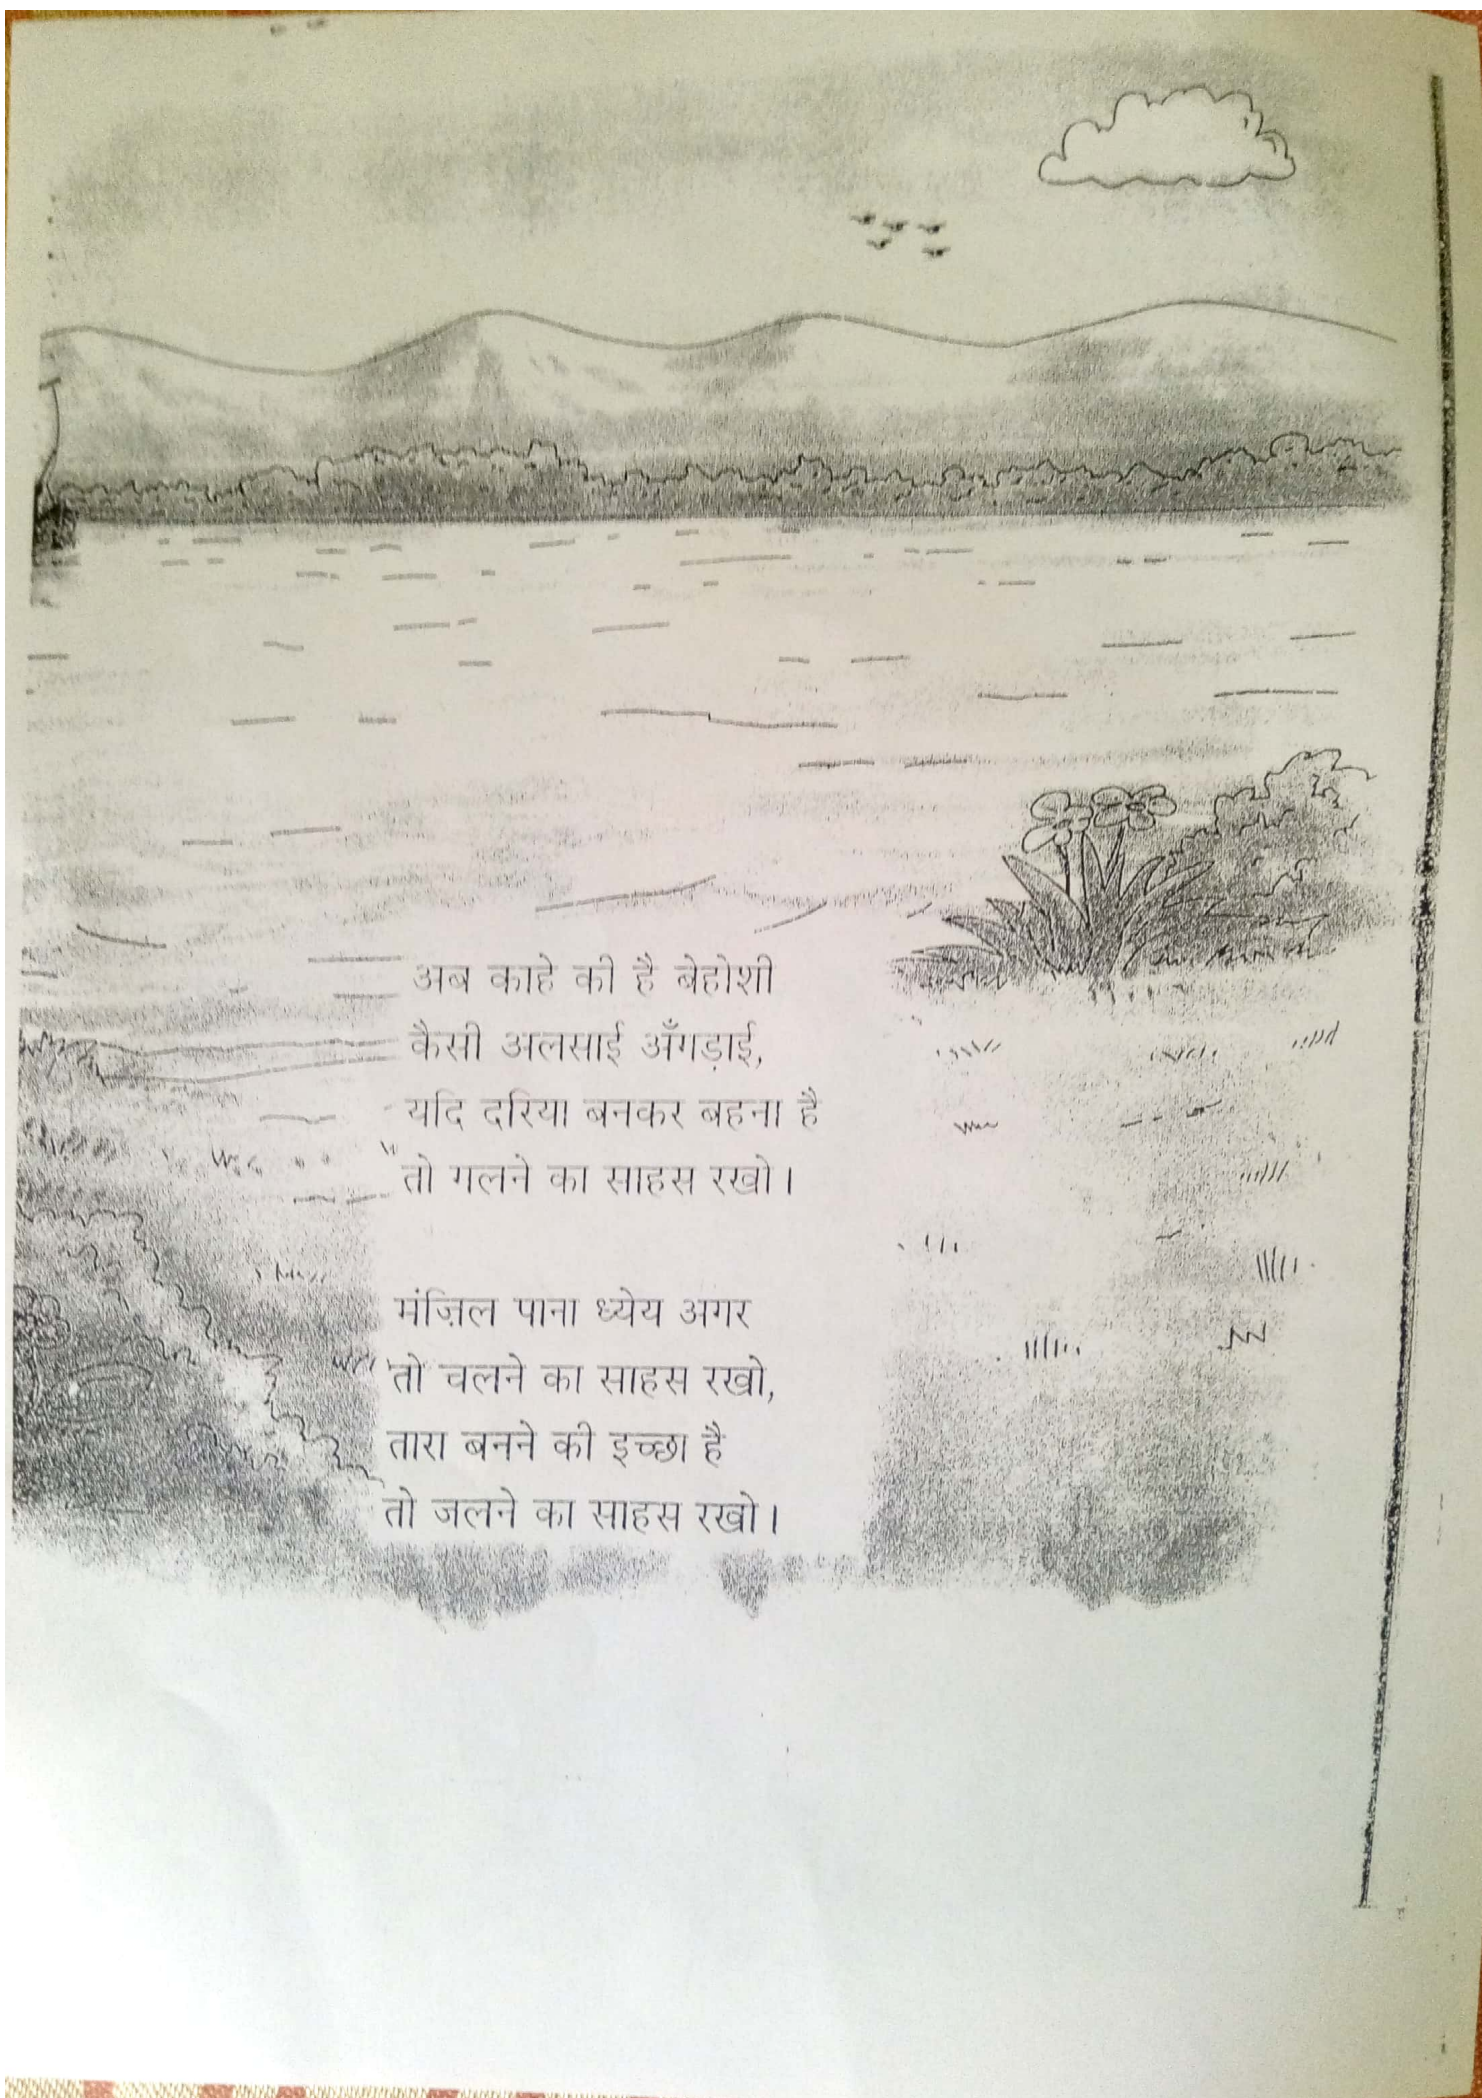 अब काहे की है बेहोशी
कैसी अलसाई अँगड़ाई,
यदि दरिया बनकर बहना है
तो गलने का साहस रखो।
मंज़िल पाना ध्येय अगर
तो चलने का साहस रखो,
तारा बनने की इच्छा है
तो जलने का साहस रखो।